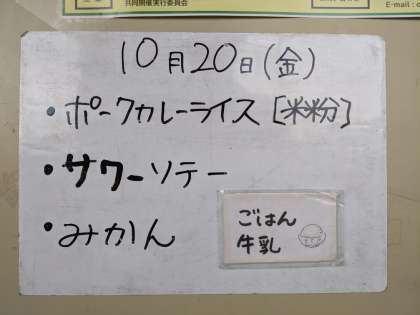 共同開催実行委員会
E-mail : c
10月20日(金)
・ポークカレーライス[米粉]
・サワーソテー
・みかん
ごはん
牛乳